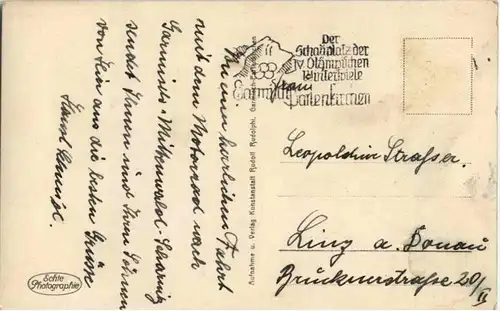 Der
Schauplatz der
IV. Olympischen
Winterspiele
Garmisch
Partenkirchen
Auf einer herrlichen Fahrt
mit dem Motorrad nach
Garmisch-Mittenwald-Scharnitz
sendet Ihnen und Ihren Söhnen
von hier aus die besten Grüsse
Aufnahme u. Verlag Kunstanstalt Rudolf Rudolphi, Garmisch-Partenkirchen
Echte
Photographie
Frau
Leopoldine Strasser.
Linz a. Donau
Brucknerstraße 20/II